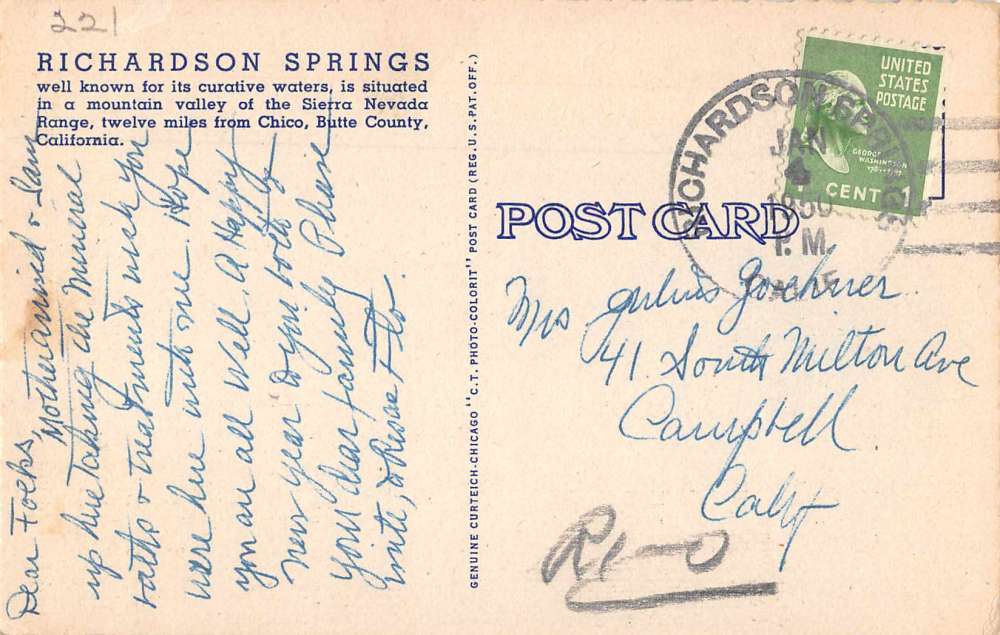 221
RICHARDSON SPRINGS
well known for its curative waters, is situated
in a mountain valley of the Sierra Nevada
Range, twelve miles from Chico, Butte County,
California.
Dear Folks,
Mother and & Sam
up here taking the mineral
baths & treatments wish you
were here with me. Hope
you are all well. A Happy
new year to you both &
your dear family Please
write, & Love Flo.
GENUINE CURTEICH-CHICAGO "C.T. PHOTO-COLORIT" POST CARD (REG. U.S. PAT. OFF.)
POST CARD
RICHARDSON SPRINGS
JAN
4
1950
P. M.
CALIF
UNITED
STATES
POSTAGE
GEORGE
WASHINGTON
1 CENT 1
Mrs Julius
41 South Milton Ave
Campbell
Calif